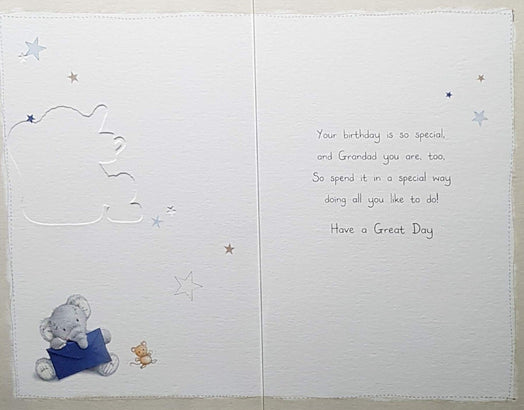 Your birthday is so special,
and Grandad you are, too,
So spend it in a special way
doing all you like to do!
Have a Great Day